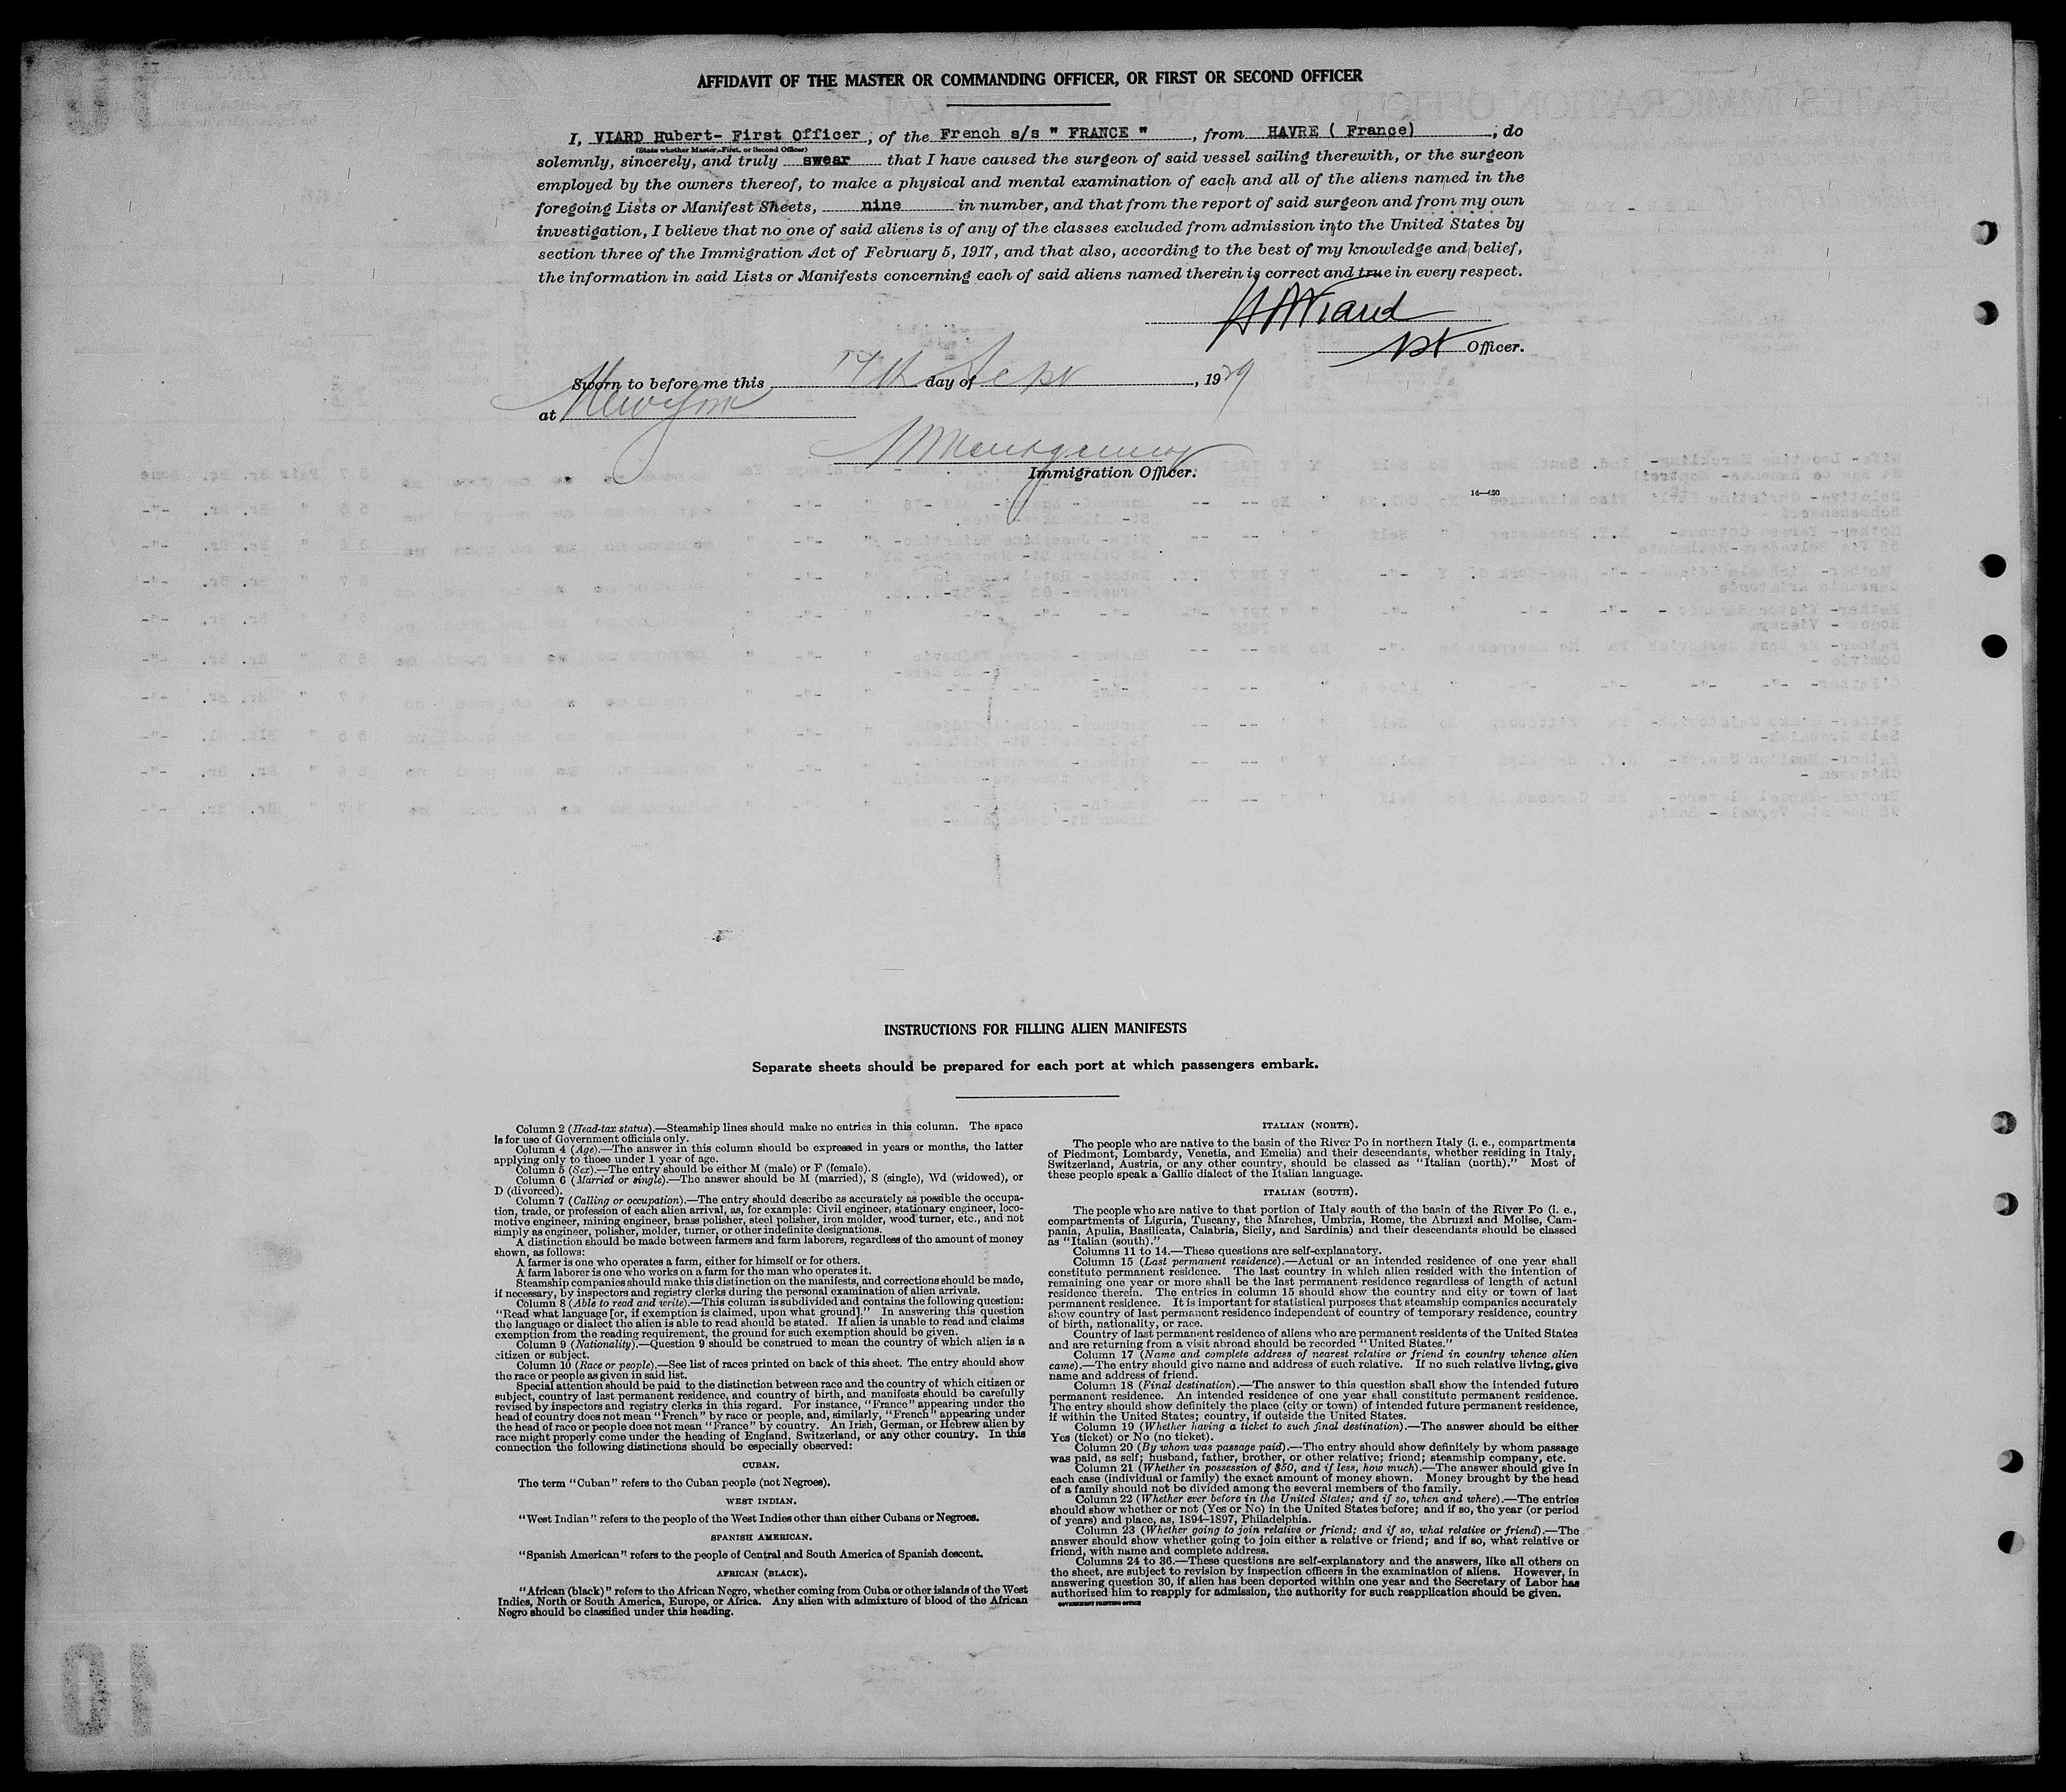 AFFIDAVIT OF THE MASTER OR COMMANDING OFFICER, OR FIRST OR SECOND OFFICER
I, VIARD Hubert- First Officer, of the French s/s " FRANCE ", from HAVRE ( France), do
(State whether Master, First, or Second Officer)
solemnly, sincerely, and truly swear that I have caused the surgeon of said vessel sailing therewith, or the surgeon
employed by the owners thereof, to make a physical and mental examination of each and all of the aliens named in the
foregoing Lists or Manifest Sheets, nine in number, and that from the report of said surgeon and from my own
investigation, I believe that no one of said aliens is of any of the classes excluded from admission into the United States by
section three of the Immigration Act of February 5, 1917, and that also, according to the best of my knowledge and belief,
the information in said Lists or Manifests concerning each of said aliens named therein is correct and true in every respect.
Viard
1st Officer.
Sworn to before me this day of Sept, 1929
at New York
Montgomery
Immigration Officer.
14—430
INSTRUCTIONS FOR FILLING ALIEN MANIFESTS
Separate sheets should be prepared for each port at which passengers embark.
Column 2 (Head-tax status).—Steamship lines should make no entries in this column. The space
is for use of Government officials only.
Column 4 (Age).—The answer in this column should be expressed in years or months, the latter
applying only to those under 1 year of age.
Column 5 (Sex).—The entry should be either M (male) or F (female).
Column 6 (Married or single).—The answer should be M (married), S (single), Wd (widowed), or
D (divorced).
Column 7 (Calling or occupation).—The entry should describe as accurately as possible the occupa-
tion, trade, or profession of each alien arrival, as, for example: Civil engineer, stationary engineer, loco-
motive engineer, mining engineer, brass polisher, steel polisher, iron molder, wood turner, etc., and not
simply as engineer, polisher, molder, turner, or other indefinite designations.
A distinction should be made between farmers and farm laborers, regardless of the amount of money
shown, as follows:
A farmer is one who operates a farm, either for himself or for others.
A farm laborer is one who works on a farm for the man who operates it.
Steamship companies should make this distinction on the manifests, and corrections should be made,
if necessary, by inspectors and registry clerks during the personal examination of alien arrivals.
Column 8 (Able to read and write).—This column is subdivided and contains the following question:
"Read what language [or, if exemption is claimed, upon what ground]." In answering this question
the language or dialect the alien is able to read should be stated. If alien is unable to read and claims
exemption from the reading requirement, the ground for such exemption should be given.
Column 9 (Nationality).—Question 9 should be construed to mean the country of which alien is a
citizen or subject.
Column 10 (Race or people).—See list of races printed on back of this sheet. The entry should show
the race or people as given in said list.
Special attention should be paid to the distinction between race and the country of which citizen or
subject, country of last permanent residence, and country of birth, and manifests should be carefully
revised by inspectors and registry clerks in this regard. For instance, "France" appearing under the
head of country does not mean "French" by race or people, and, similarly, "French" appearing under
the head of race or people does not mean "France" by country. An Irish, German, or Hebrew alien by
race might properly come under the heading of England, Switzerland, or any other country. In this
connection the following distinctions should be especially observed:
CUBAN.
The term "Cuban" refers to the Cuban people (not Negroes).
WEST INDIAN.
"West Indian" refers to the people of the West Indies other than either Cubans or Negroes.
SPANISH AMERICAN.
"Spanish American" refers to the people of Central and South America of Spanish descent.
AFRICAN (BLACK).
"African (black)" refers to the African Negro, whether coming from Cuba or other islands of the West
Indies, North or South America, Europe, or Africa. Any alien with admixture of blood of the African
Negro should be classified under this heading.
ITALIAN (NORTH).
The people who are native to the basin of the River Po in northern Italy (i. e., compartments
of Piedmont, Lombardy, Venetia, and Emelia) and their descendants, whether residing in Italy,
Switzerland, Austria, or any other country, should be classed as "Italian (north)." Most of
these people speak a Gallic dialect of the Italian language.
ITALIAN (SOUTH).
The people who are native to that portion of Italy south of the basin of the River Po (i. e.,
compartments of Liguria, Tuscany, the Marches, Umbria, Rome, the Abruzzi and Molise, Cam-
pania, Apulia, Basilicata, Calabria, Sicily, and Sardinia) and their descendants should be classed
as "Italian (south)."
Columns 11 to 14.—These questions are self-explanatory.
Column 15 (Last permanent residence).—Actual or an intended residence of one year shall
constitute permanent residence. The last country in which alien resided with the intention of
remaining one year or more shall be the last permanent residence regardless of length of actual
residence therein. The entries in column 15 should show the country and city or town of last
permanent residence. It is important for statistical purposes that steamship companies accurately
show country of last permanent residence independent of country of temporary residence, country
of birth, nationality, or race.
Country of last permanent residence of aliens who are permanent residents of the United States
and are returning from a visit abroad should be recorded "United States."
Column 17 (Name and complete address of nearest relative or friend in country whence alien
came).—The entry should give name and address of such relative. If no such relative living, give
name and address of friend.
Column 18 (Final destination).—The answer to this question shall show the intended future
permanent residence. An intended residence of one year shall constitute permanent residence.
The entry should show definitely the place (city or town) of intended future permanent residence,
if within the United States; country, if outside the United States.
Column 19 (Whether having a ticket to such final destination).—The answer should be either
Yes (ticket) or No (no ticket).
Column 20 (By whom was passage paid).—The entry should show definitely by whom passage
was paid, as self; husband, father, brother, or other relative; friend; steamship company, etc.
Column 21 (Whether in possession of $50, and if less, how much).—The answer should give in
each case (individual or family) the exact amount of money shown. Money brought by the head
of a family should not be divided among the several members of the family.
Column 22 (Whether ever before in the United States; and if so, when and where).—The entries
should show whether or not (Yes or No) in the United States before; and if so, the year (or period
of years) and place, as, 1894–1897, Philadelphia.
Column 23 (Whether going to join relative or friend; and if so, what relative or friend).—The
answer should show whether going to join either a relative or friend; and if so, what relative or
friend, with name and complete address.
Columns 24 to 36.—These questions are self-explanatory and the answers, like all others on
the sheet, are subject to revision by inspection officers in the examination of aliens. However, in
answering question 30, if alien has been deported within one year and the Secretary of Labor has
authorized him to reapply for admission, the authority for such reapplication should be given.
GOVERNMENT PRINTING OFFICE
10